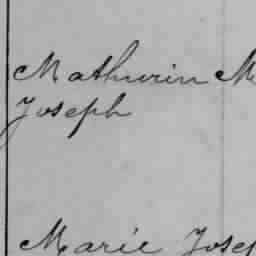 Mathurin M
Joseph
Marie Josep